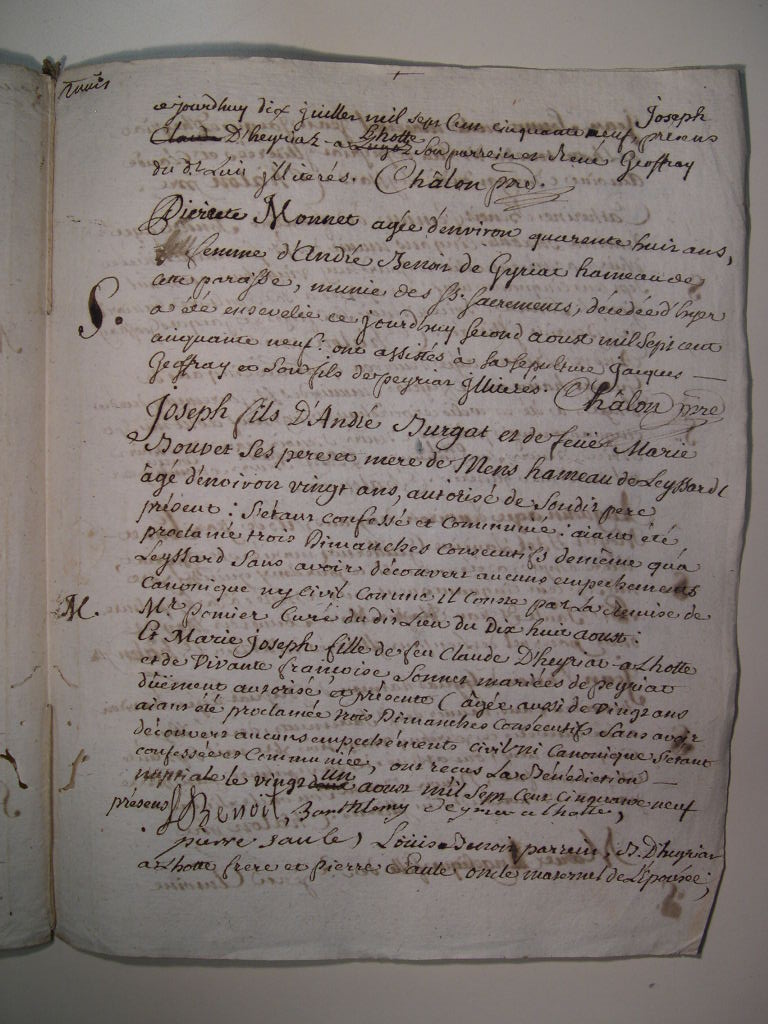 ce jourdhuy dix juillet mil sept cent cinquante neuf, présens Joseph
Claude D'heyriat-a-Lhotte son parrein et René Geoffray
du dt. Lui illiteres. Châlon pre.
Pierrete Monnet agée d'environ quarente huit ans,
femme d'André Benoit de Gyriat hameau de
cette paroisse, munie des SS. sacrements, décédée d'hyer
S. a été ensevelie ce jourdhuy second aoust mil sept cent
cinquante neuf: ont assistés à sa sepulture Jacques
Geoffray et son fils de peyriat illiteres. Châlon pre
Joseph fils D'André Burgat et de feüe Marie
Bouvet ses pere et mere de Mens hameau de Leyssard
âgé d'enoiron vingt ans, autorisé de sondit pere
présent: s'étant confessé et communié: aiant été
proclamée trois Dimanches consecutifs demême qu'a
Leyssard sans avoir découvert aucuns empechements
Canonique ny civil comme il conste par la remise de
M. Mr. Curé dudit Lieu du Dix huit aoust:
Et Marie joseph fille de feu Claude D'heyriat-a-Lhotte
et de Vivante françoise Sonnet mariées de peyriat
düement autorisé et présente (âgée aussi de vingt ans
aians été proclamée trois Dimanches Consécutifs sans avoir
découvert aucuns empechéments civil ni Canonique s'étant
confessée et Communiée, ont reçus La Bénédiction
nuptiale le vingt deux un aoust mil sept cent cinquante neuf
présens J Benoit, Barthlemy Deyriat a lhotte,
pierre saule, Louis Benoit parrein, D'heyriat
a Lhotte frere et pierre Saule oncle maternel de L'épousée;